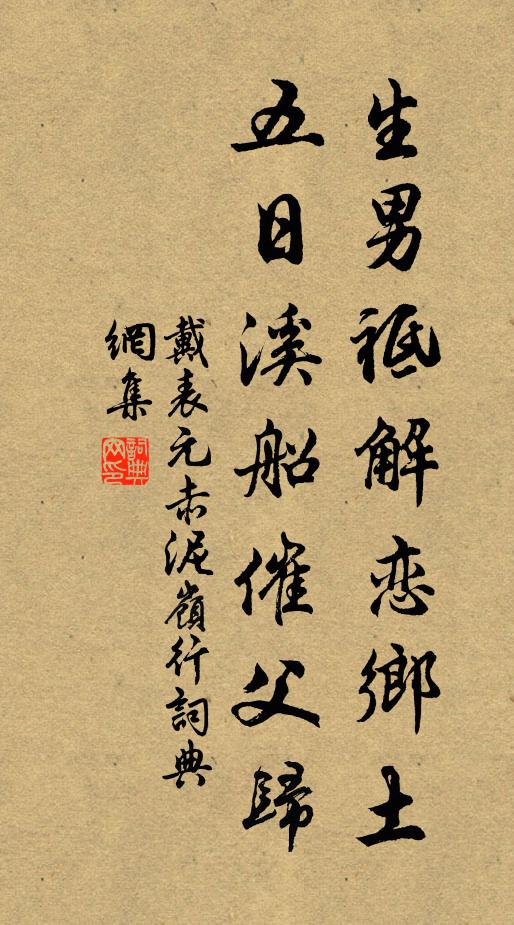 生男祗解恋鄉土
五日溪船催父歸
戴表元赤泥嶺行詞典
網集
詞典網印